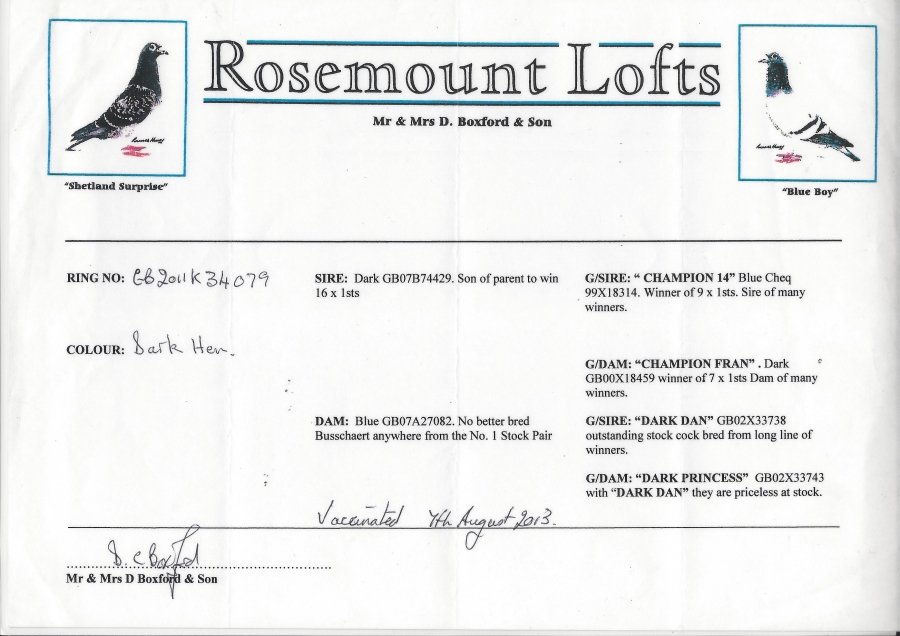 Rosemount Lofts
Mr & Mrs D. Boxford & Son
"Shetland Surprise"
"Blue Boy"
RING NO: GB2011K34079
COLOUR: Dark Hen.
SIRE: Dark GB07B74429. Son of parent to win
16 x 1sts
DAM: Blue GB07A27082. No better bred
Busschaert anywhere from the No. 1 Stock Pair
G/SIRE: " CHAMPION 14" Blue Cheq
99X18314. Winner of 9 x 1sts. Sire of many
winners.
G/DAM: "CHAMPION FRAN" . Dark
GB00X18459 winner of 7 x 1sts Dam of many
winners.
G/SIRE: "DARK DAN" GB02X33738
outstanding stock cock bred from long line of
winners.
G/DAM: "DARK PRINCESS" GB02X33743
with "DARK DAN" they are priceless at stock.
Vaccinated 7th August 2013.
D. C Boxford
Mr & Mrs D Boxford & Son